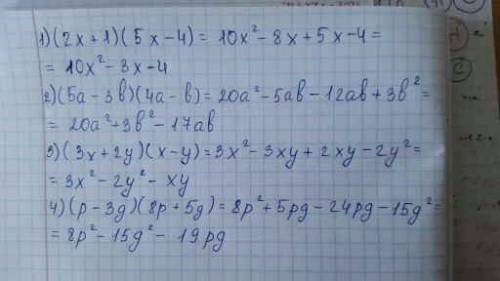 1) (2x+1)(5x-4) = 10x²-8x+5x-4=
= 10x²-3x-4
2) (5a-3b)(4a-b)=20a²-5ab-12ab+3b²=
= 20a²+3b²-17ab
3) (3x+2y)(x-y)=3x²-3xy+2xy-2y²=
= 3x²-2y²-xy
4) (p-3g)(8p+5g)=8p²+5pg-24pg-15g²=
= 8p²-15g²-19pg